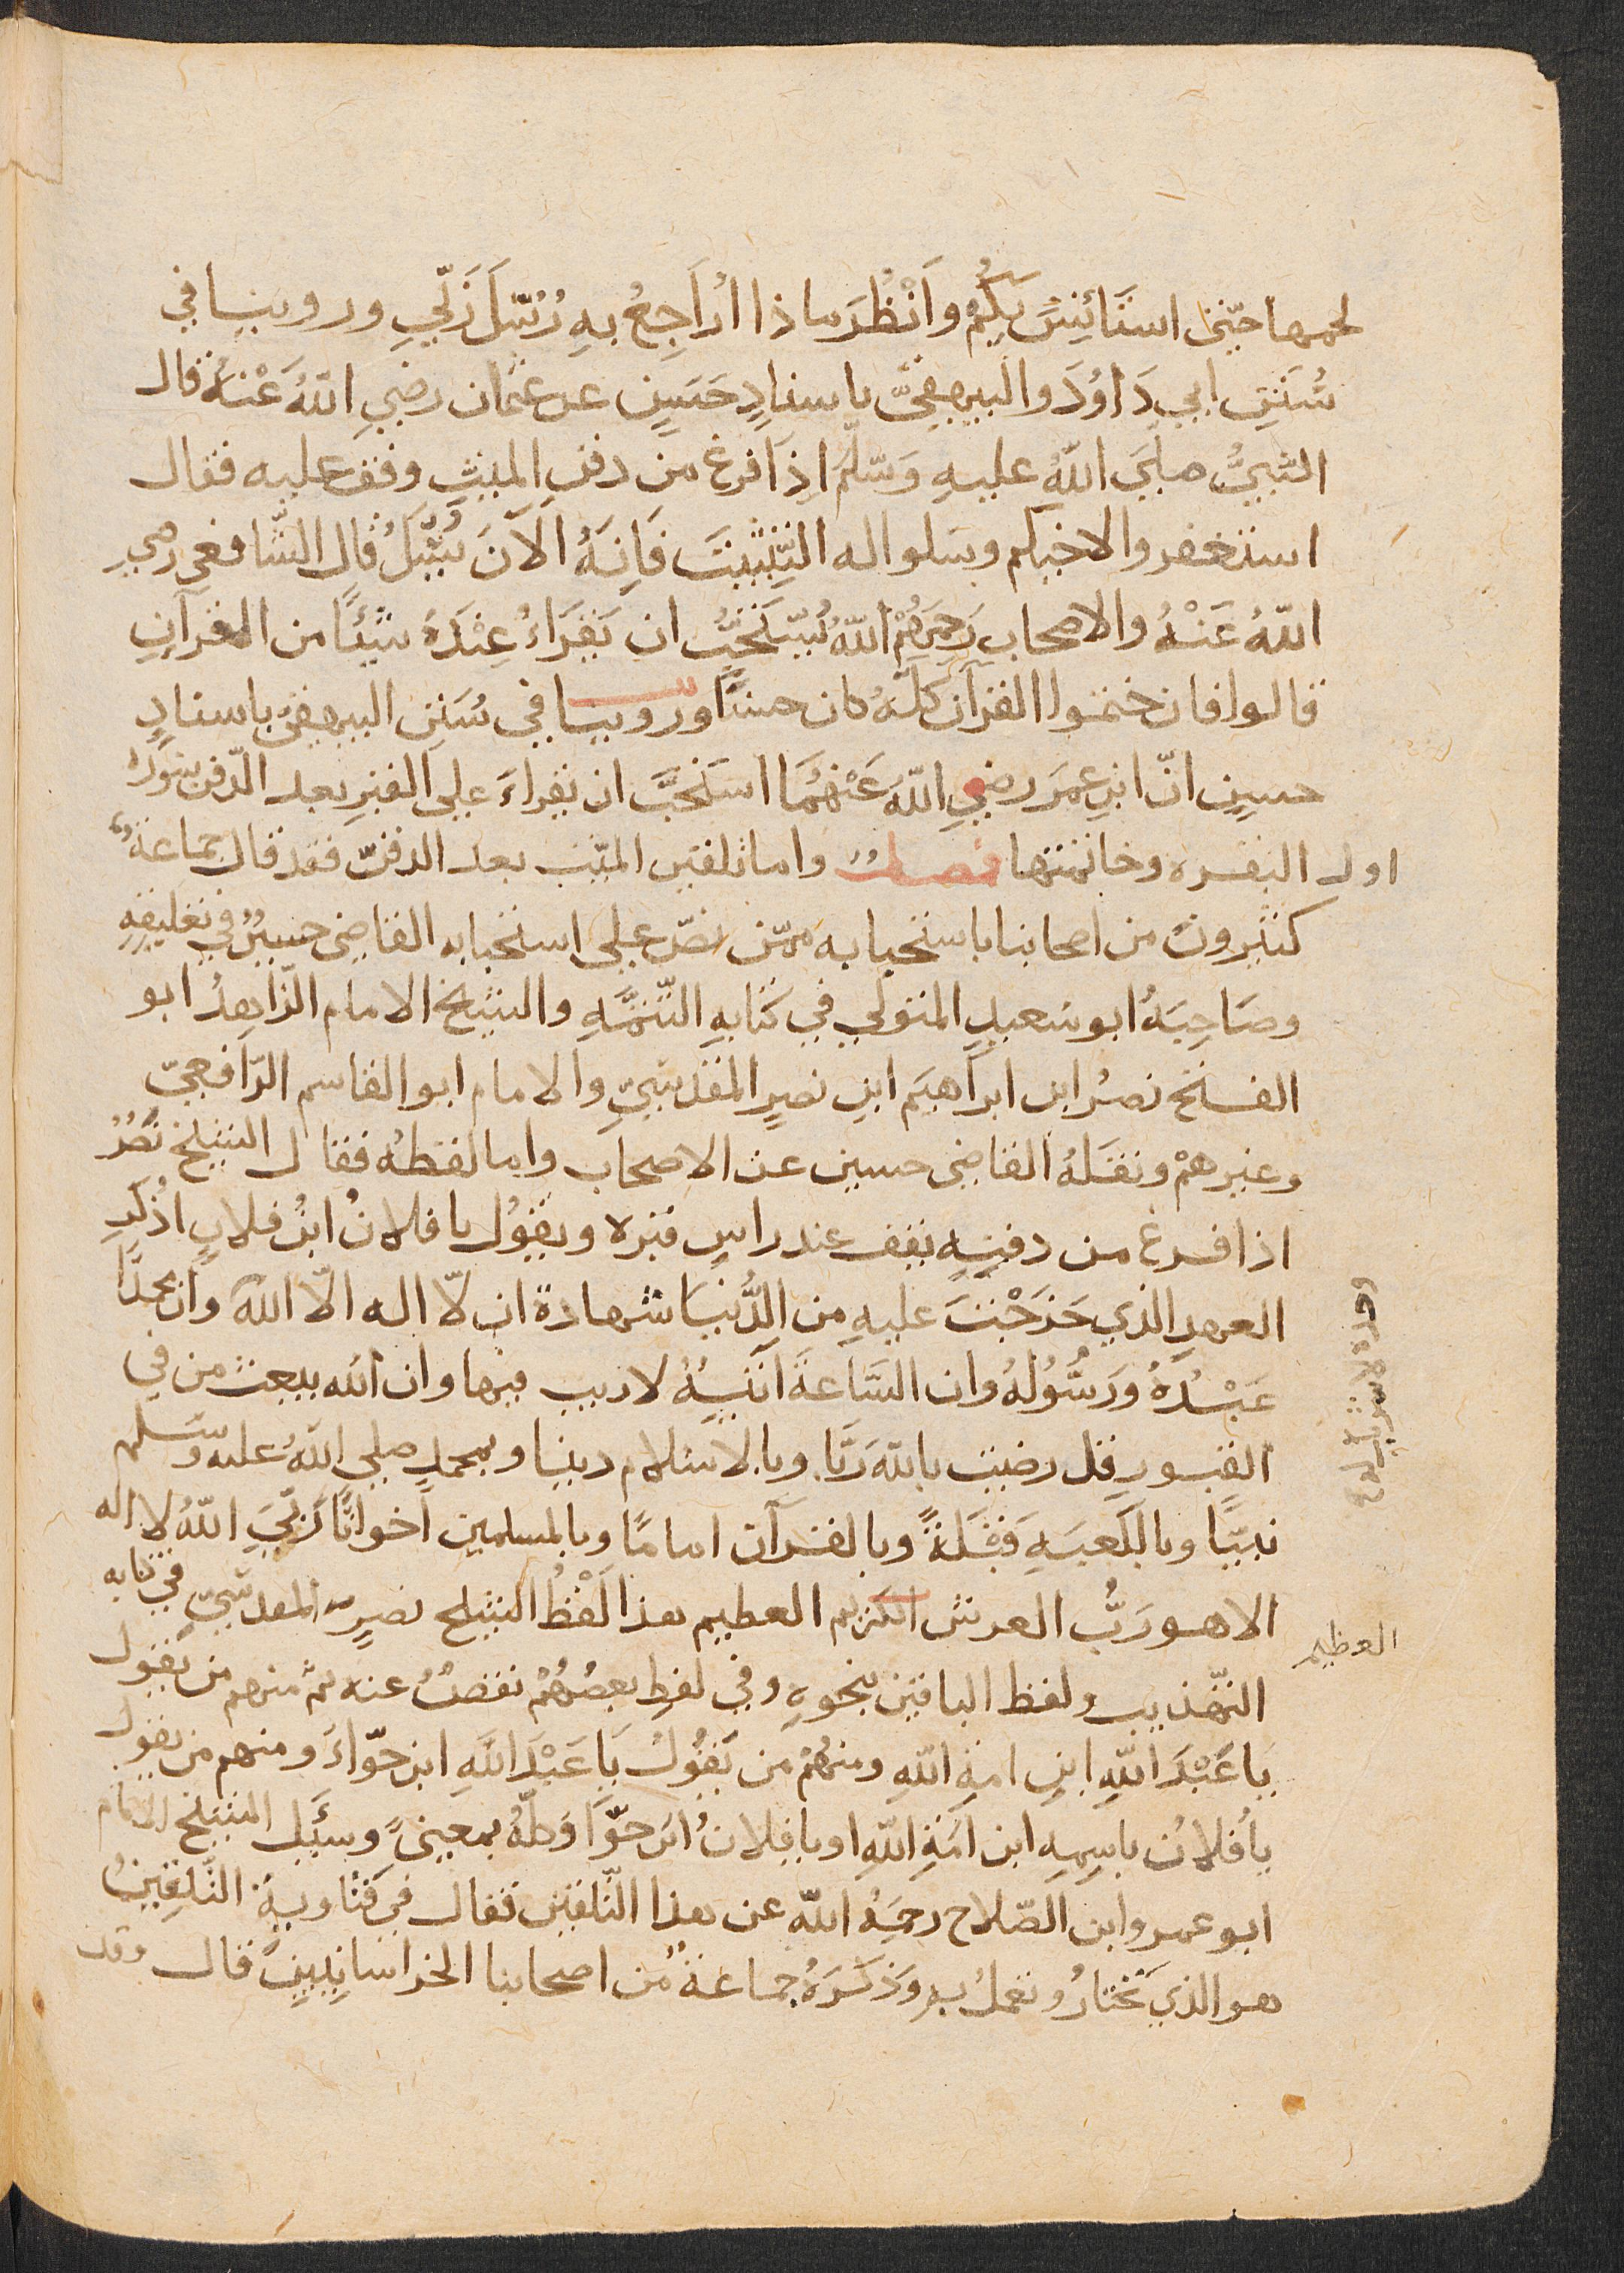 لحمها حتى استأنس بكم وانظر ماذا اراجع به رسل ربي وروينا في
سنن ابي داود والبيهقي باسناد حسن عن عثمان رضي الله عنه قال
النبي صلى الله عليه وسلم اذا فرغ من دفن الميت وقف عليه فقال
استغفروا لاخيكم وسلوا له التثبيت فانه الآن يسئل قال الشافعي رضي
الله عنه والاصحاب رحمهم الله يستحب ان يقراء عنده شيئا من القرآن
قالوا فان ختموا القرآن كله كان حسنا وروينا في سنن البيهقي باسناد
حسن ان ابن عمر رضي الله عنهما استحب ان يقراء على القبر بعد الدفن سورة
اول البقره وخاتمتها فصل واما تلقين الميت بعد الدفن فقد قال جماعة
كثيرون من اصحابنا باستحبابه ممن نص على استحبابه القاضي حسين في تعليقه
وصاحبه ابو سعيد المتولي في كتابه التتمه والشيخ الامام الزاهد ابو
الفتح نصر ابن ابراهيم ابن نصر المقدسي والامام ابو القاسم الرافعي
وغيرهم ونقله القاضي حسين عن الاصحاب واما لفظه فقال الشيخ نصر
اذا فرغ من دفنه يقف عند راس قبره ويقول يا فلان ابن فلان اذكر
العهد الذي خرجت عليه من الدنيا شهادة ان لا اله الا الله وان محمدا
عبده ورسوله وان الساعة آتية لا ريب فيها وان الله يبعث من في
القبور قل رضيت بالله ربا وبالاسلام دينا وبمحمد صلى الله عليه وسلم
نبيا وبالكعبه قبلة وبالقرآن اماما وبالمسلمين اخوانا ربي الله لا اله
الا هو رب العرش الكريم العظيم هذا لفظ الشيخ نصر المقدسي في كتابه
العظيم
التهذيب ولفظ الباقين بنحوه وفي لفظ بعضهم نقص عنه ثم منهم من يقول
يا عبد الله ابن امة الله ومنهم من يقول يا عبد الله ابن حواء ومنهم من يقول
يا فلان باسمه ابن امة الله او يا فلان ابن حوا وكله بمعنى وسئل الشيخ الامام
ابو عمرو ابن الصلاح رحمه الله عن هذا التلقين فقال في فتاويه التلقين
هو الذي نختار ونعمل به وذكره جماعة من اصحابنا الخراسانيين قال وقد